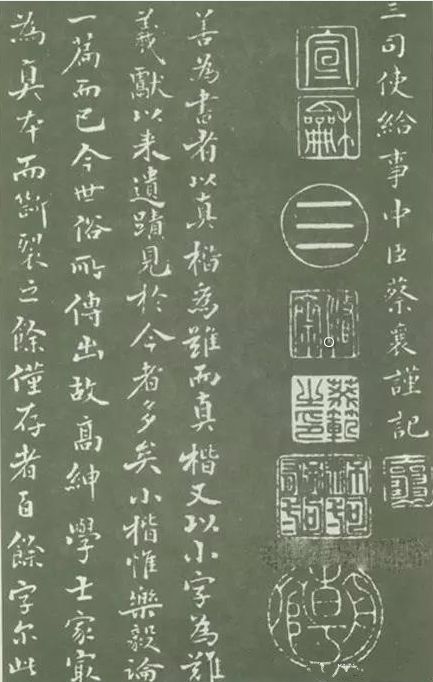 三司使給事中臣蔡襄謹記
宣
龢
善為書者以真楷為難而真楷又以小字為難
羲獻以來遺蹟見於今者多矣小楷惟樂毅論
一篇而已今世俗所傳出故高紳學士家最
為真本而斷裂之餘僅存者百餘字尔此